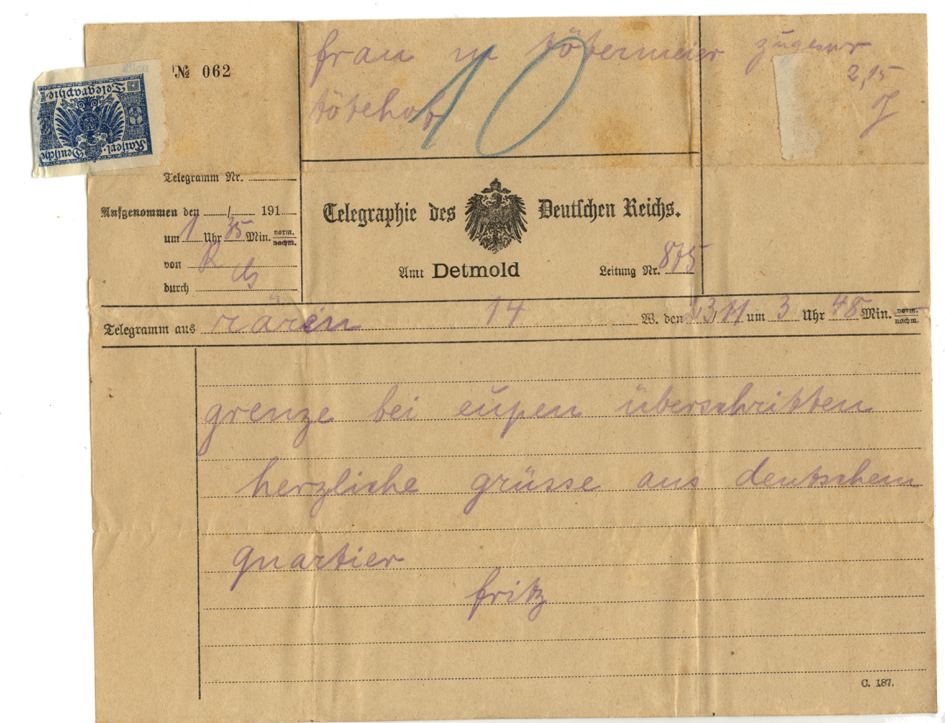 № 062
frau m tötermeier zugespr
2,15
tötehof
10
Kaiserl. Deutsche
Telegraphie
Telegramm Nr.
Aufgenommen den / 191
um 1 Uhr 35 Min. vorm. nachm.
von
durch
Telegraphie des Deutschen Reichs.
Amt Detmold Leitung Nr.
Telegramm aus rären 14 W. den 23/11 um 3 Uhr 48 Min. vorm. nachm.
grenze bei eupen überschritten
herzliche grüsse aus deutschem
quartier
fritz
C. 187.